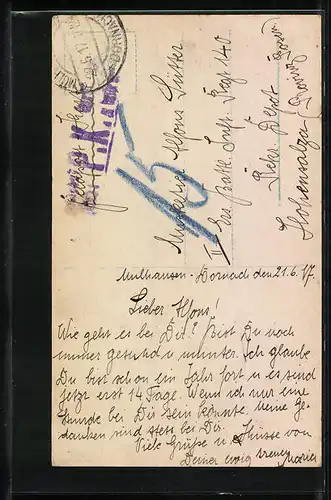 Musketier Alfons Sutter
II Ers. Batl. Inft. Rgt 140
Rekr. Depot
Hohensalza
Posen
Provinz
15
Mulhausen-Dornach den 21.6.17
Lieber Alfons!
Wie geht es bei Dir? Bist Du noch
immer gesund u munter. Ich glaube
Du bist schon ein Jahr fort u es sind
jetzt erst 14 Tage. Wenn ich nur eine
Stunde bei Dir sein könnte. Meine Ge-
danken sind stets bei Dir.
Viele Grüße u Küsse von
Deiner ewig treuen Maria